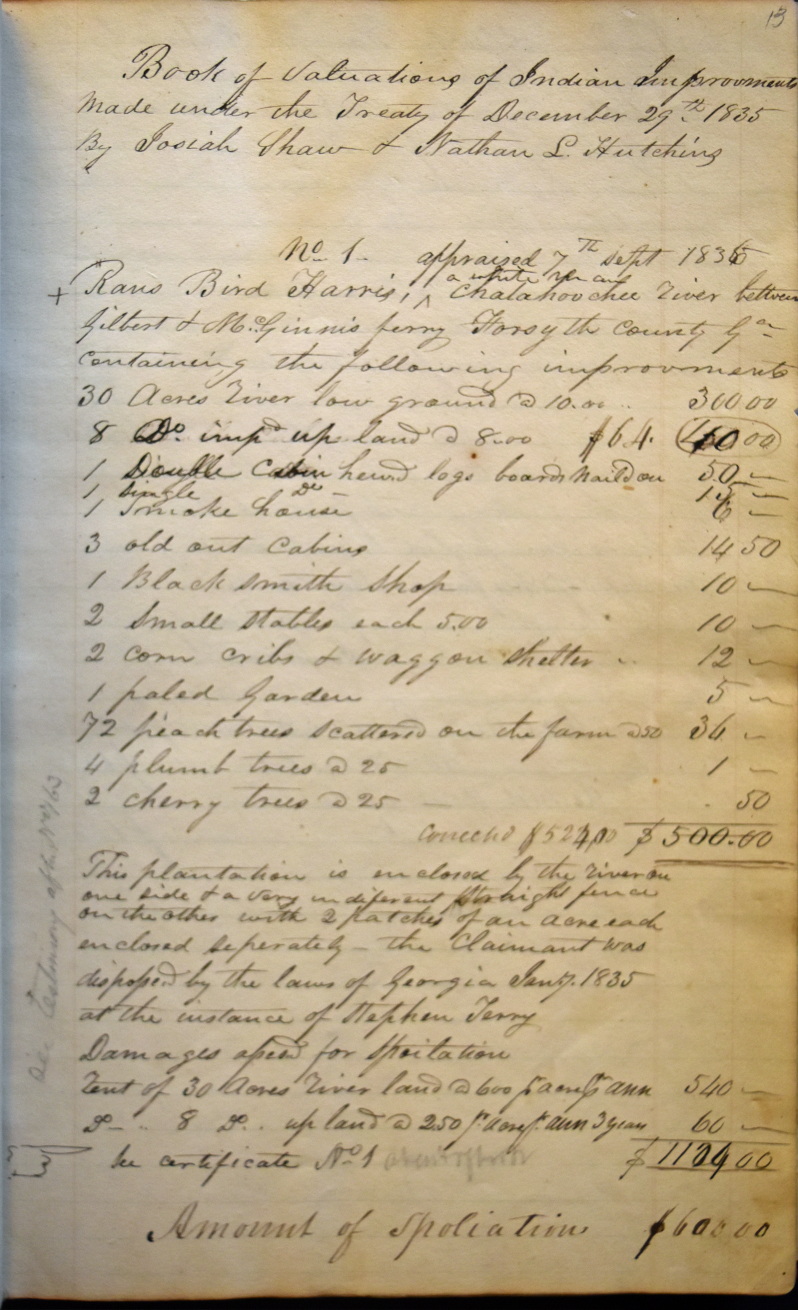 13
Book of Valuations of Indian Improvments
Made under the Treaty of December 29th 1835
By Josiah Shaw & Nathan L. Hutchins
No 1. appraised 7th Sept 1836
a white man
+ Bird Harris, ^ Chatahoochee River between
Gilbert & McGinnis ferry Forsyth County Ga
containing the following improvments
30 Acres River low ground @ 10.00 300 00
8 Do. impd up land @ 8.00 $64. 00
1 Double Cabin hewd logs boards naild on 50 —
1 Single Do — 15 —
1 Smoke house 6 —
3 old out Cabins 14 50
1 Black Smith Shop 10 —
2 Small Stables each 5.00 10 —
2 corn cribs & waggon Shelter .. 12 —
1 paled Garden 5 —
72 peach trees Scattered on the farm @ 50 36 —
4 plumb trees @ 25 1 —
2 cherry trees @ 25 — 50
$524,00 $500.00
This plantation is enclosed by the River on
one side & a very indiferent Straight fence
on the other with 2 patches of an acre each
enclosed seperately — the Claimant was
dispossd by the laws of Georgia Jany. 1835
at the instance of Stephen Terry
Damages assd for Spoilation
Rent of 30 Acres River land @ 600 pr acre pr ann 540 —
Do — .. 8 Do .. up land @ 250 pr acre pr ann 3 years 60 —
See certificate No 1 $ 1124 00
Amount of Spoliation $600.00
See Testimony